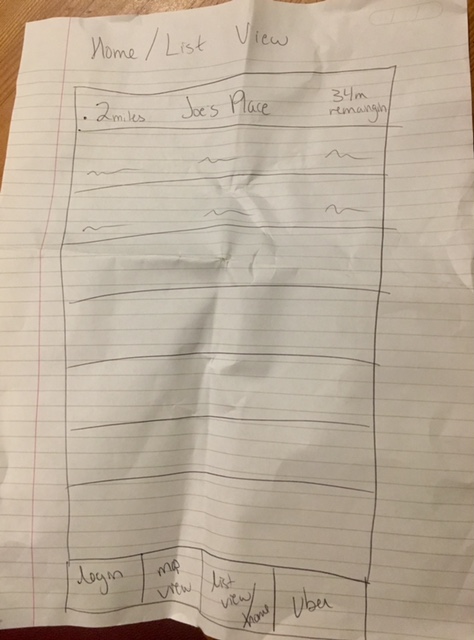 Home / List View
.2miles Joe's Place 34m
remaingin
login
map
view
list
view/
home
Uber